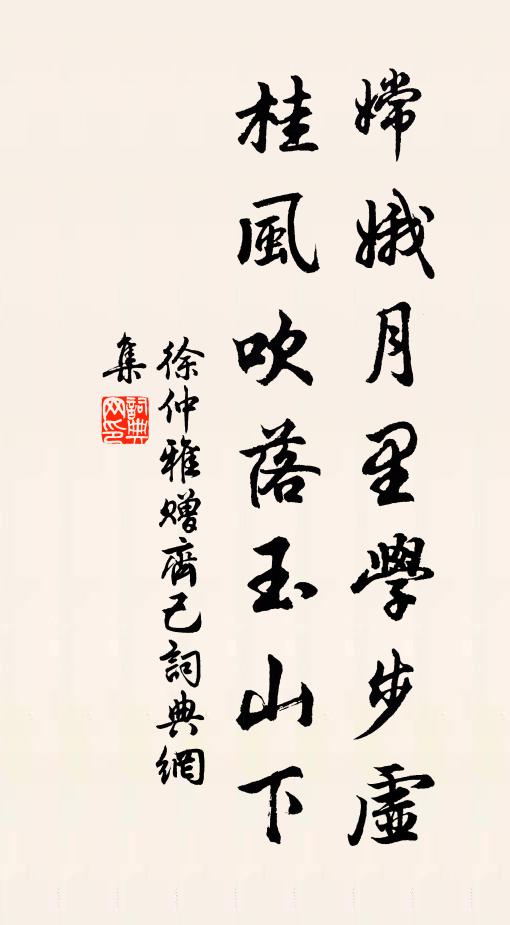 嫦娥月里學步虛
桂風吹落玉山下
徐仲雅贈齊己詞典網
集
詞典
网印